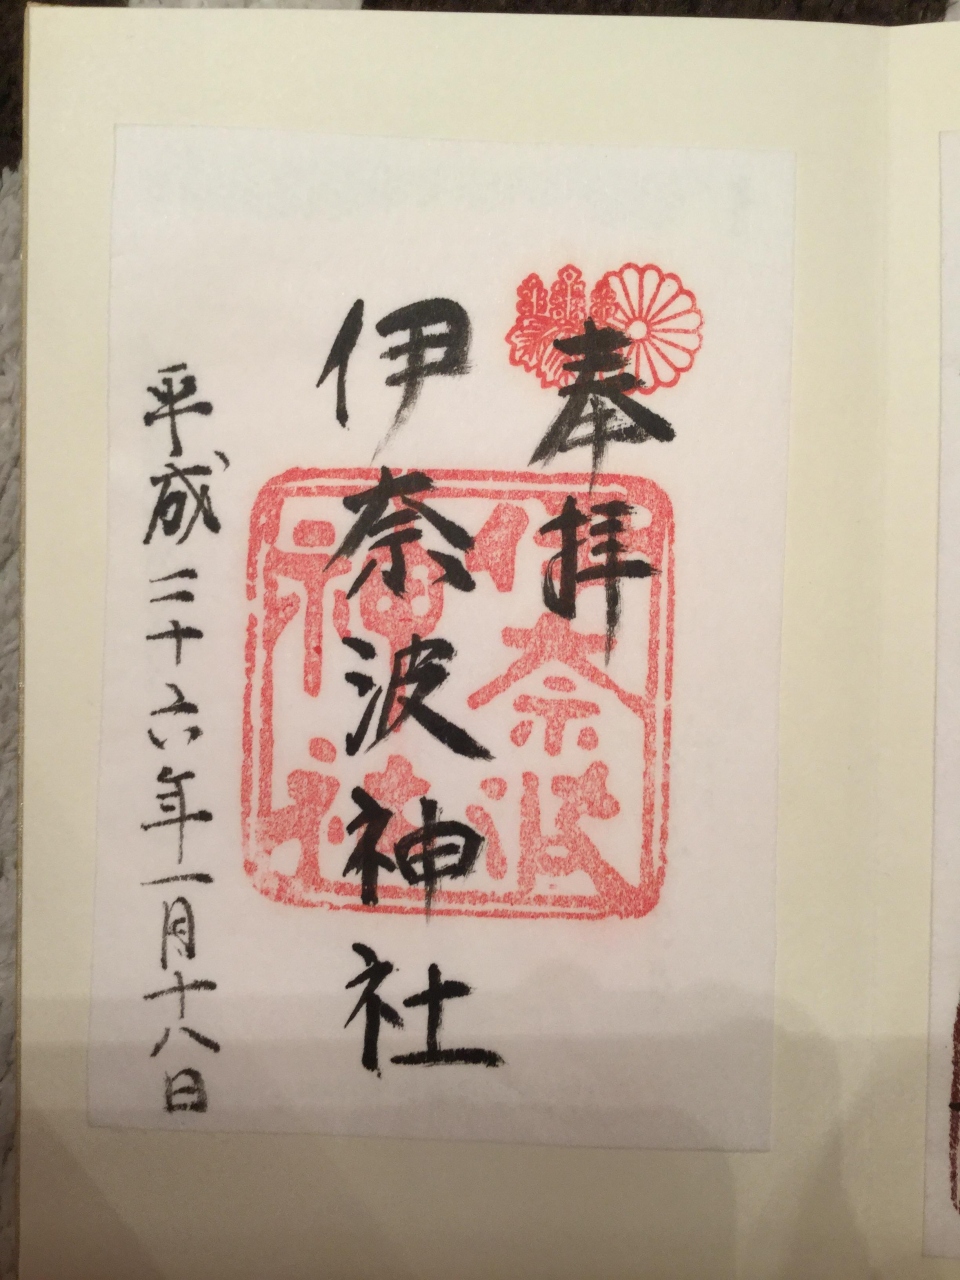 奉拝
伊奈波神社
平成二十六年一月十八日
伊奈波
神社